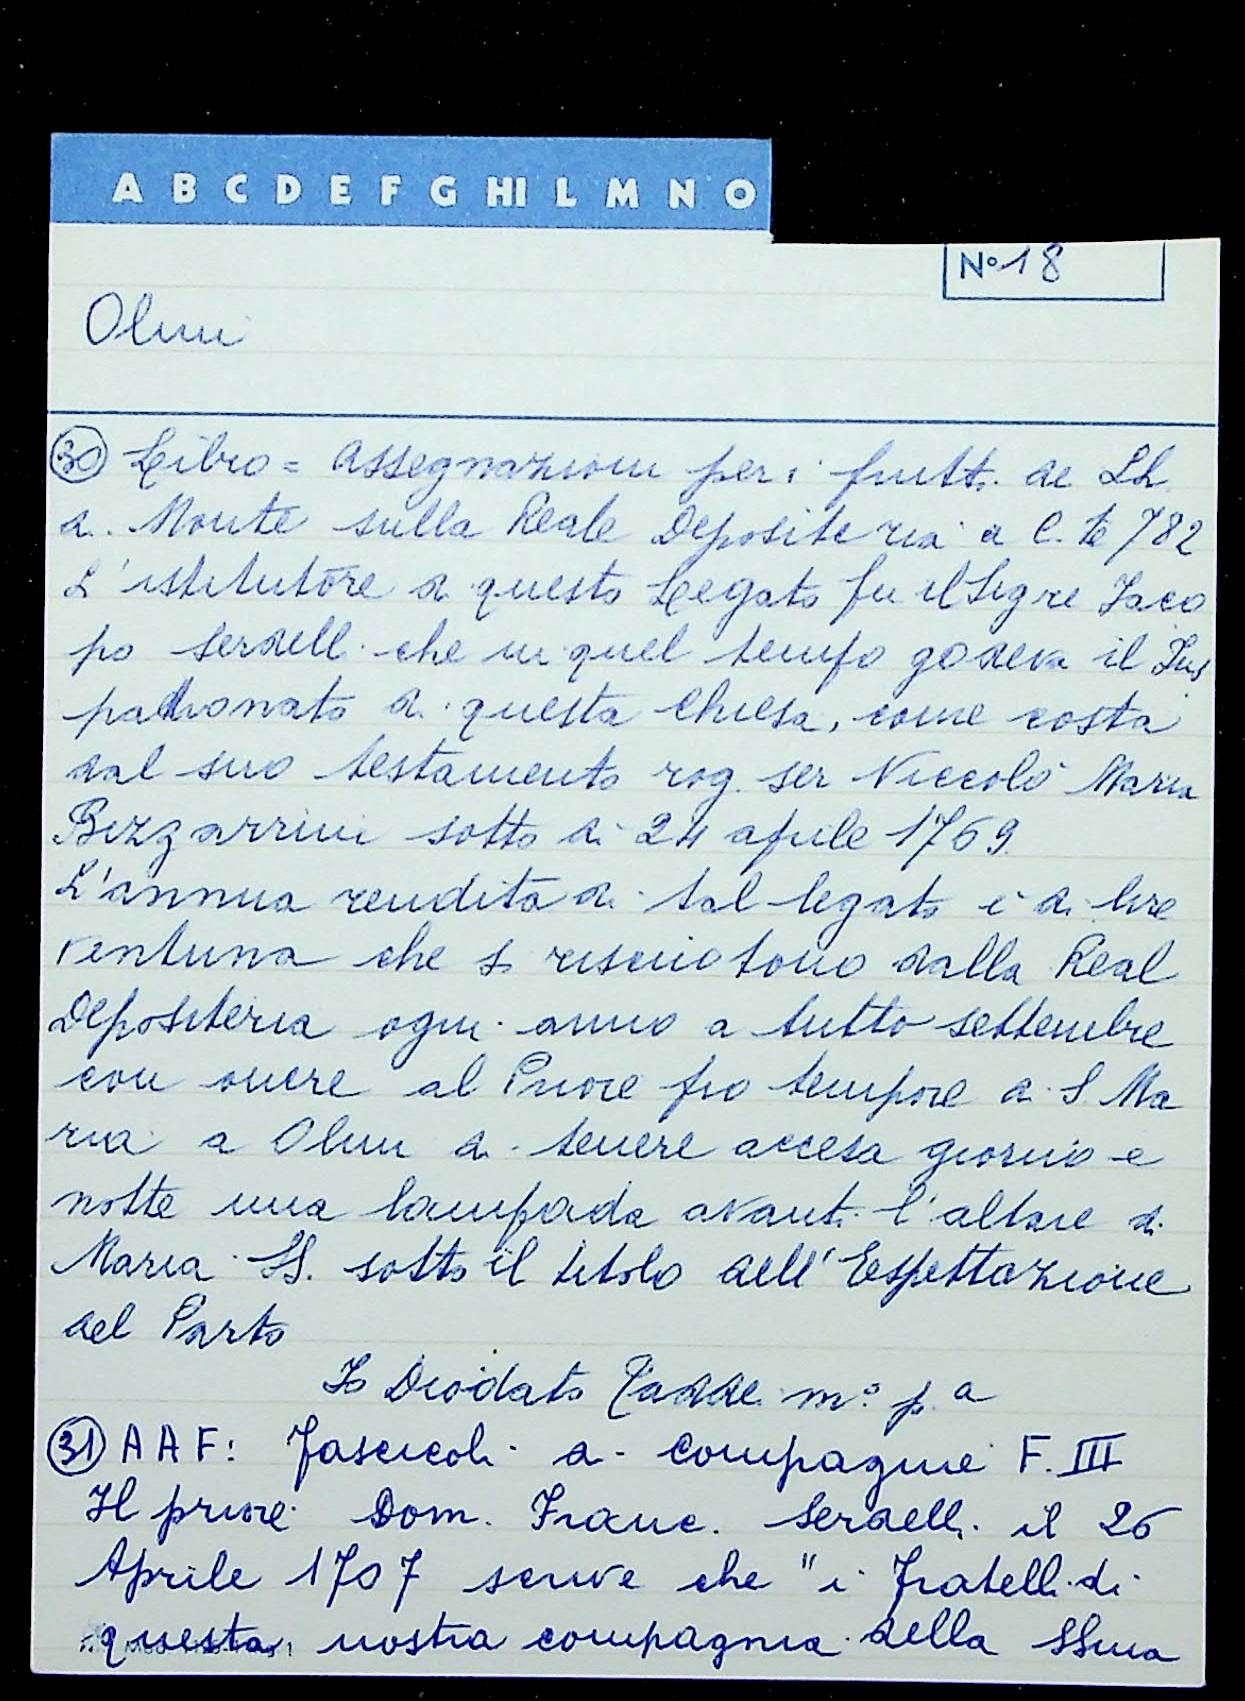 A B C D E F G HI L M N O
N° 18
Olmi
30 Libro = Assegnazioni per i frutti de LL.
di Monte sulla Reale Depositeria a C.te 782
L'istitutore di questo Legato fu il Sigre Jaco
po Serdelli che in quel tempo godeva il Jus
padronato di questa Chiesa, come costa
dal suo testamento rog. ser Niccolò Maria
Bizzarrini sotto di 24 aprile 1769.
L'annua rendita di tal legato è di lire
ventuna che si riscuotono dalla Real
Depositeria ogni anno a tutto settembre
con onere al Priore pro tempore di S. Ma
ria a Olmi di tenere accesa giorno e
notte una lampada avanti l'altare di
Maria SS. sotto il titolo dell'Espettazione
del Parto
Io Diodato Taddei m.o p.a
31 AAF: Fascicoli di compagnie F. III
Il priore Dom. Franc. Serdelli il 26
Aprile 1707 scrive che "i fratelli di
questa nostra compagnia della SSma